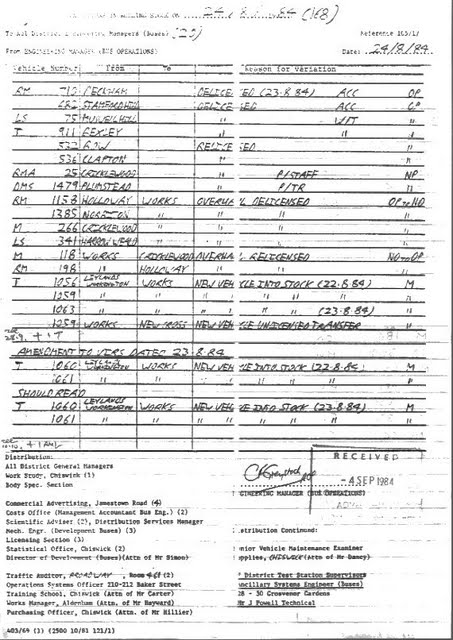 24/8/84 (168)
To All District Engineering Managers (Buses) (20) Reference 105/1/
From ENGINEERING MANAGER (BUS OPERATIONS) Date: 24/8/84
Vehicle Number From To Reason for Variation
RM 710 PECKHAM DELICENSED (23·8·84) ACC OP
682 STAMFORD HILL DELICENSED ACC OP
LS 75 MUSWELL HILL " VIT "
T 911 BEXLEY " " "
532 BOW RELICENSED "
536 CLAPTON " "
RMA 25 CRICKLEWOOD " P/STAFF NP
DMS 1479 PLUMSTEAD " P/TR "
RM 1158 HOLLOWAY WORKS OVERHAUL DELICENSED OP to NO
1385 NORBITON " " " "
M 266 CRICKLEWOOD " " " "
LS 341 HARROW WEALD " " " "
M 118 WORKS CRICKLEWOOD OVERHAUL RELICENSED NO to OP
RM 198 " HOLLOWAY " " "
T 1056 LEYLANDS WORKINGTON WORKS NEW VEHICLE INTO STOCK (22·8·84) M
1259 " " " " " "
1063 " " " " (23·8·84) "
1259 WORKS NEW CROSS NEW VEHICLE UNLICENSED TRANSFER "
AMENDMENT TO VIRS DATED 23·8·84
T 1060 LEYLANDS WORKINGTON WORKS NEW VEHICLE INTO STOCK (22·8·84) M
1061 " " " " " "
SHOULD READ
T 1060 LEYLANDS WORKINGTON WORKS NEW VEHICLE INTO STOCK (22·8·84) M
1061 " " " " " "
Distribution: RECEIVED
All District General Managers
Work Study, Chiswick (1) - 4 SEP 1984
Body Spec. Section GINEERING MANAGER (BUS OPERATIONS)
Commercial Advertising, Jamestown Road (4)
Costs Office (Management Accountant Bus Eng.) (2)
Scientific Adviser (2), Distribution Services Manager
Mech. Engr. (Development Buses) (3) stribution Continued:
Licensing Section (3)
Statistical Office, Chiswick (2) nior Vehicle Maintenance Examiner
Director of Development (Buses)(Attn of Mr Simon) pplies, CHISWICK (Attn of Mr Dancy)
Traffic Auditor, BROADWAY, Room (2) District Test Station Supervisors
Operations Systems Officer 110-212 Baker Street ncillary Systems Engineer (Buses)
Training School, Chiswick (Attn of Mr Carter) 28 - 30 Grosvenor Gardens
Works Manager, Aldenham (Attn. of Mr Hayward) Mr J Powell Technical
Purchasing Officer, Chiswick (Attn. of Mr Hillier)
403/69 (3) (2500 10/81 123/1)